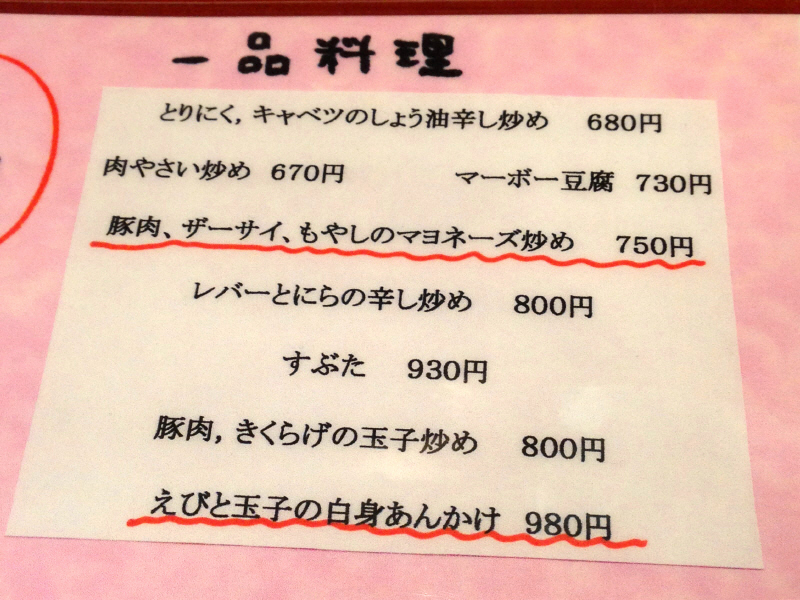 一品料理
とりにく,キャベツのしょう油辛し炒め 680円
肉やさい炒め 670円 マーボー豆腐 730円
豚肉、ザーサイ、もやしのマヨネーズ炒め 750円
レバーとにらの辛し炒め 800円
すぶた 930円
豚肉,きくらげの玉子炒め 800円
えびと玉子の白身あんかけ 980円